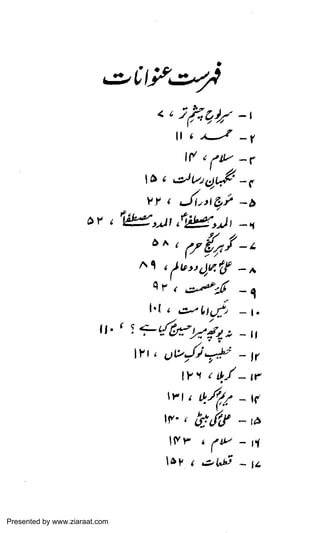 فہرست عنوانات
۱ - سرِ لوحِ چشمِ تر ، ۷
۲ - حمد ، ۱۱
۳ - سلام ، ۱۴
۴ - نگہبانِ رسالت ، ۱۵
۵ - موجِ ادراک ، ۲۲
۶ - المدد مصطفےٰؐ، المدد مصطفےٰؐ ، ۵۲
۷ - گوہرِ گنجِ حرم ، ۵۸
۸ - علیؑ جمالِ دو عالم ، ۸۹
۹ - ملکۂ عصمت ، ۹۲
۱۰ - رئیسِ امامت ، ۱۰۱
۱۱ - نہ پوچھ میرا حسینؑ کیا ہے ؟ ، ۱۱۰
۱۲ - خطیبِ نوکِ سناں ، ۱۲۱
۱۳ - کربلا ، ۱۲۶
۱۴ - مریمِ کربلا ، ۱۳۱
۱۵ - علیؑ کی بیٹی ، ۱۴۰
۱۶ - سلام ، ۱۴۳
۱۷ - قطعات ، ۱۵۲
Presented by www.ziaraat.com